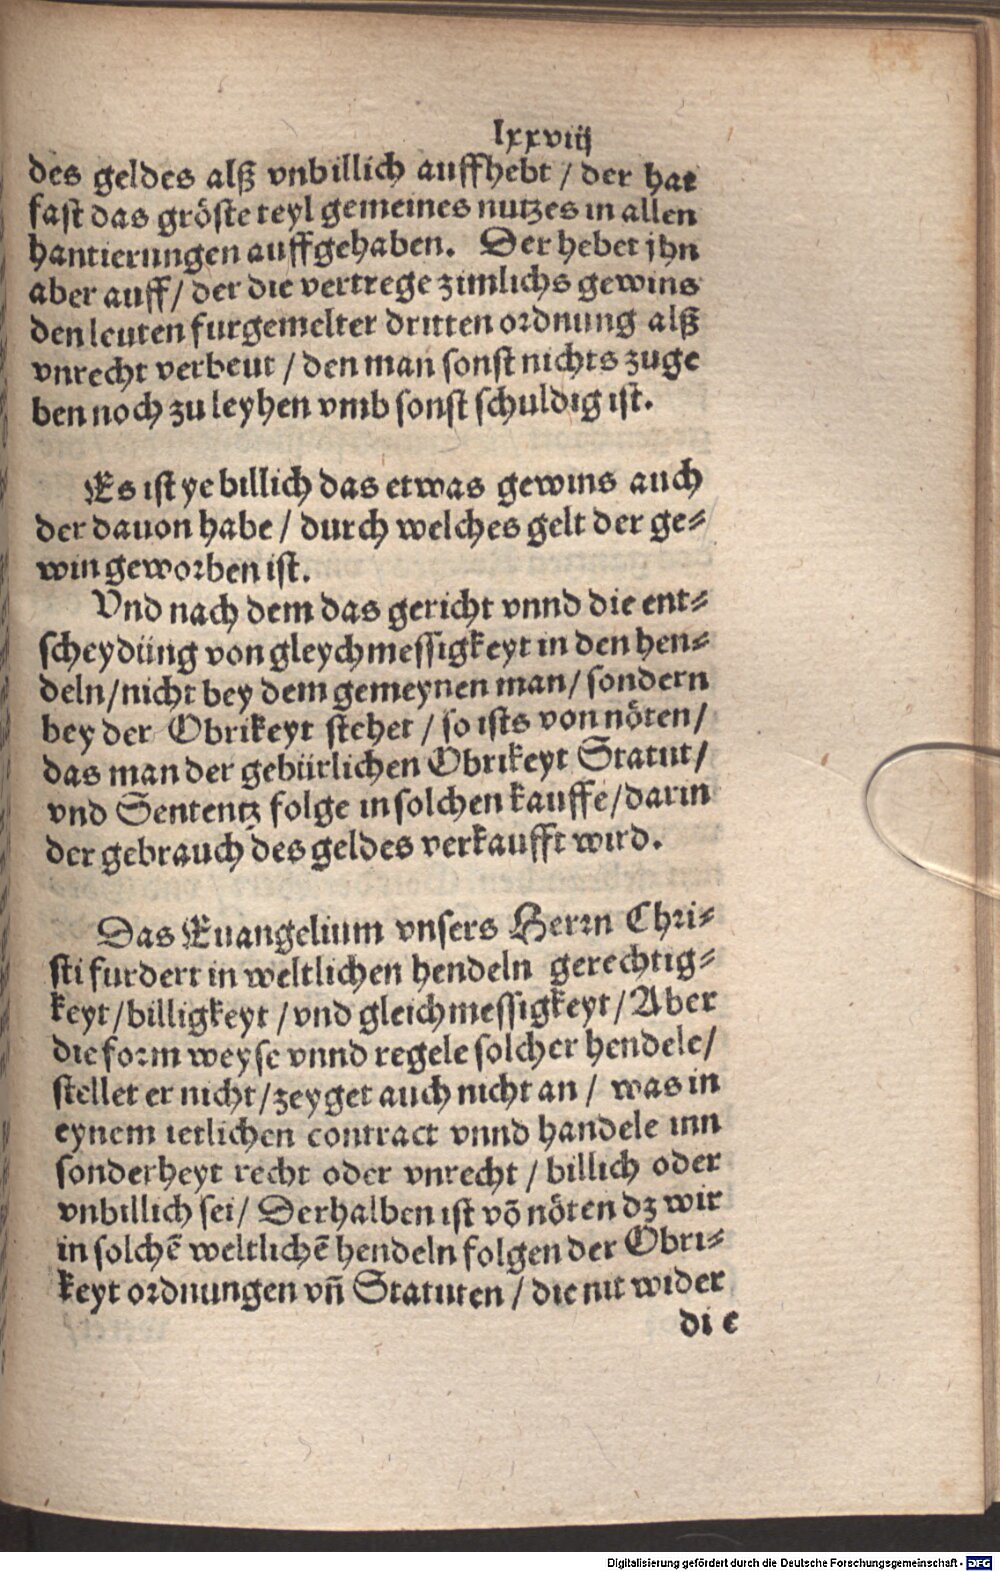 lxxviij
des geldes alß vnbillich auffhebt / der hat
fast das gröste teyl gemeines nutzes in allen
hantierungen auffgehaben. Der hebet jhn
aber auff / der die vertrege zimlichs gewins
den leuten furgemelter dritten ordnung alß
vnrecht verbeut / den man sonst nichts zuge
ben noch zu leyhen vmb sonst schuldig ist.
Es ist ye billich das etwas gewins auch
der dauon habe / durch welches gelt der ge⸗
win geworben ist.
Vnd nach dem das gericht vnnd die ent⸗
scheydüng von gleychmessigkeyt in den hen⸗
deln / nicht bey dem gemeynen man / sondern
bey der Obrikeyt stehet / so ists von nöten /
das man der gebürlichen Obrikeyt Statut /
vnd Sententz folge in solchen kauffe / darin
der gebrauch des geldes verkaufft wird.
Das Euangelium vnsers Herrn Chri⸗
sti furdert in weltlichen hendeln gerechtig⸗
keyt / billigkeyt / vnd gleichmessigkeyt / Aber
die form weyse vnnd regele solcher hendele /
stellet er nicht / zeyget auch nicht an / was in
eynem ietlichen contract vnnd handele inn
sonderheyt recht oder vnrecht / billich oder
vnbillich sei / Derhalben ist võ nöten dz wir
in solchẽ weltlichẽ hendeln folgen der Obri⸗
keyt ordnungen vñ Statuten / die nit wider
die
Digitalisierung gefördert durch die Deutsche Forschungsgemeinschaft - DFG